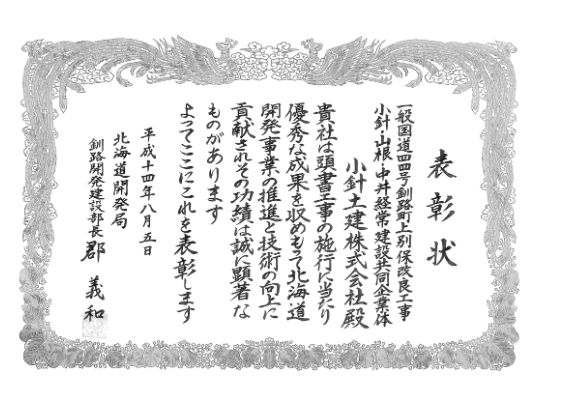 表彰状
一般国道四四号釧路町上別保改良工事
小針・山根・中井経常建設共同企業体
小針土建株式会社殿
貴社は頭書工事の施行に当たり
優秀な成果を収めもって北海道
開発事業の推進と技術の向上に
貢献されその功績は誠に顕著な
ものがあります
よってここにこれを表彰します
平成十四年八月五日
北海道開発局
釧路開発建設部長 郡 義和